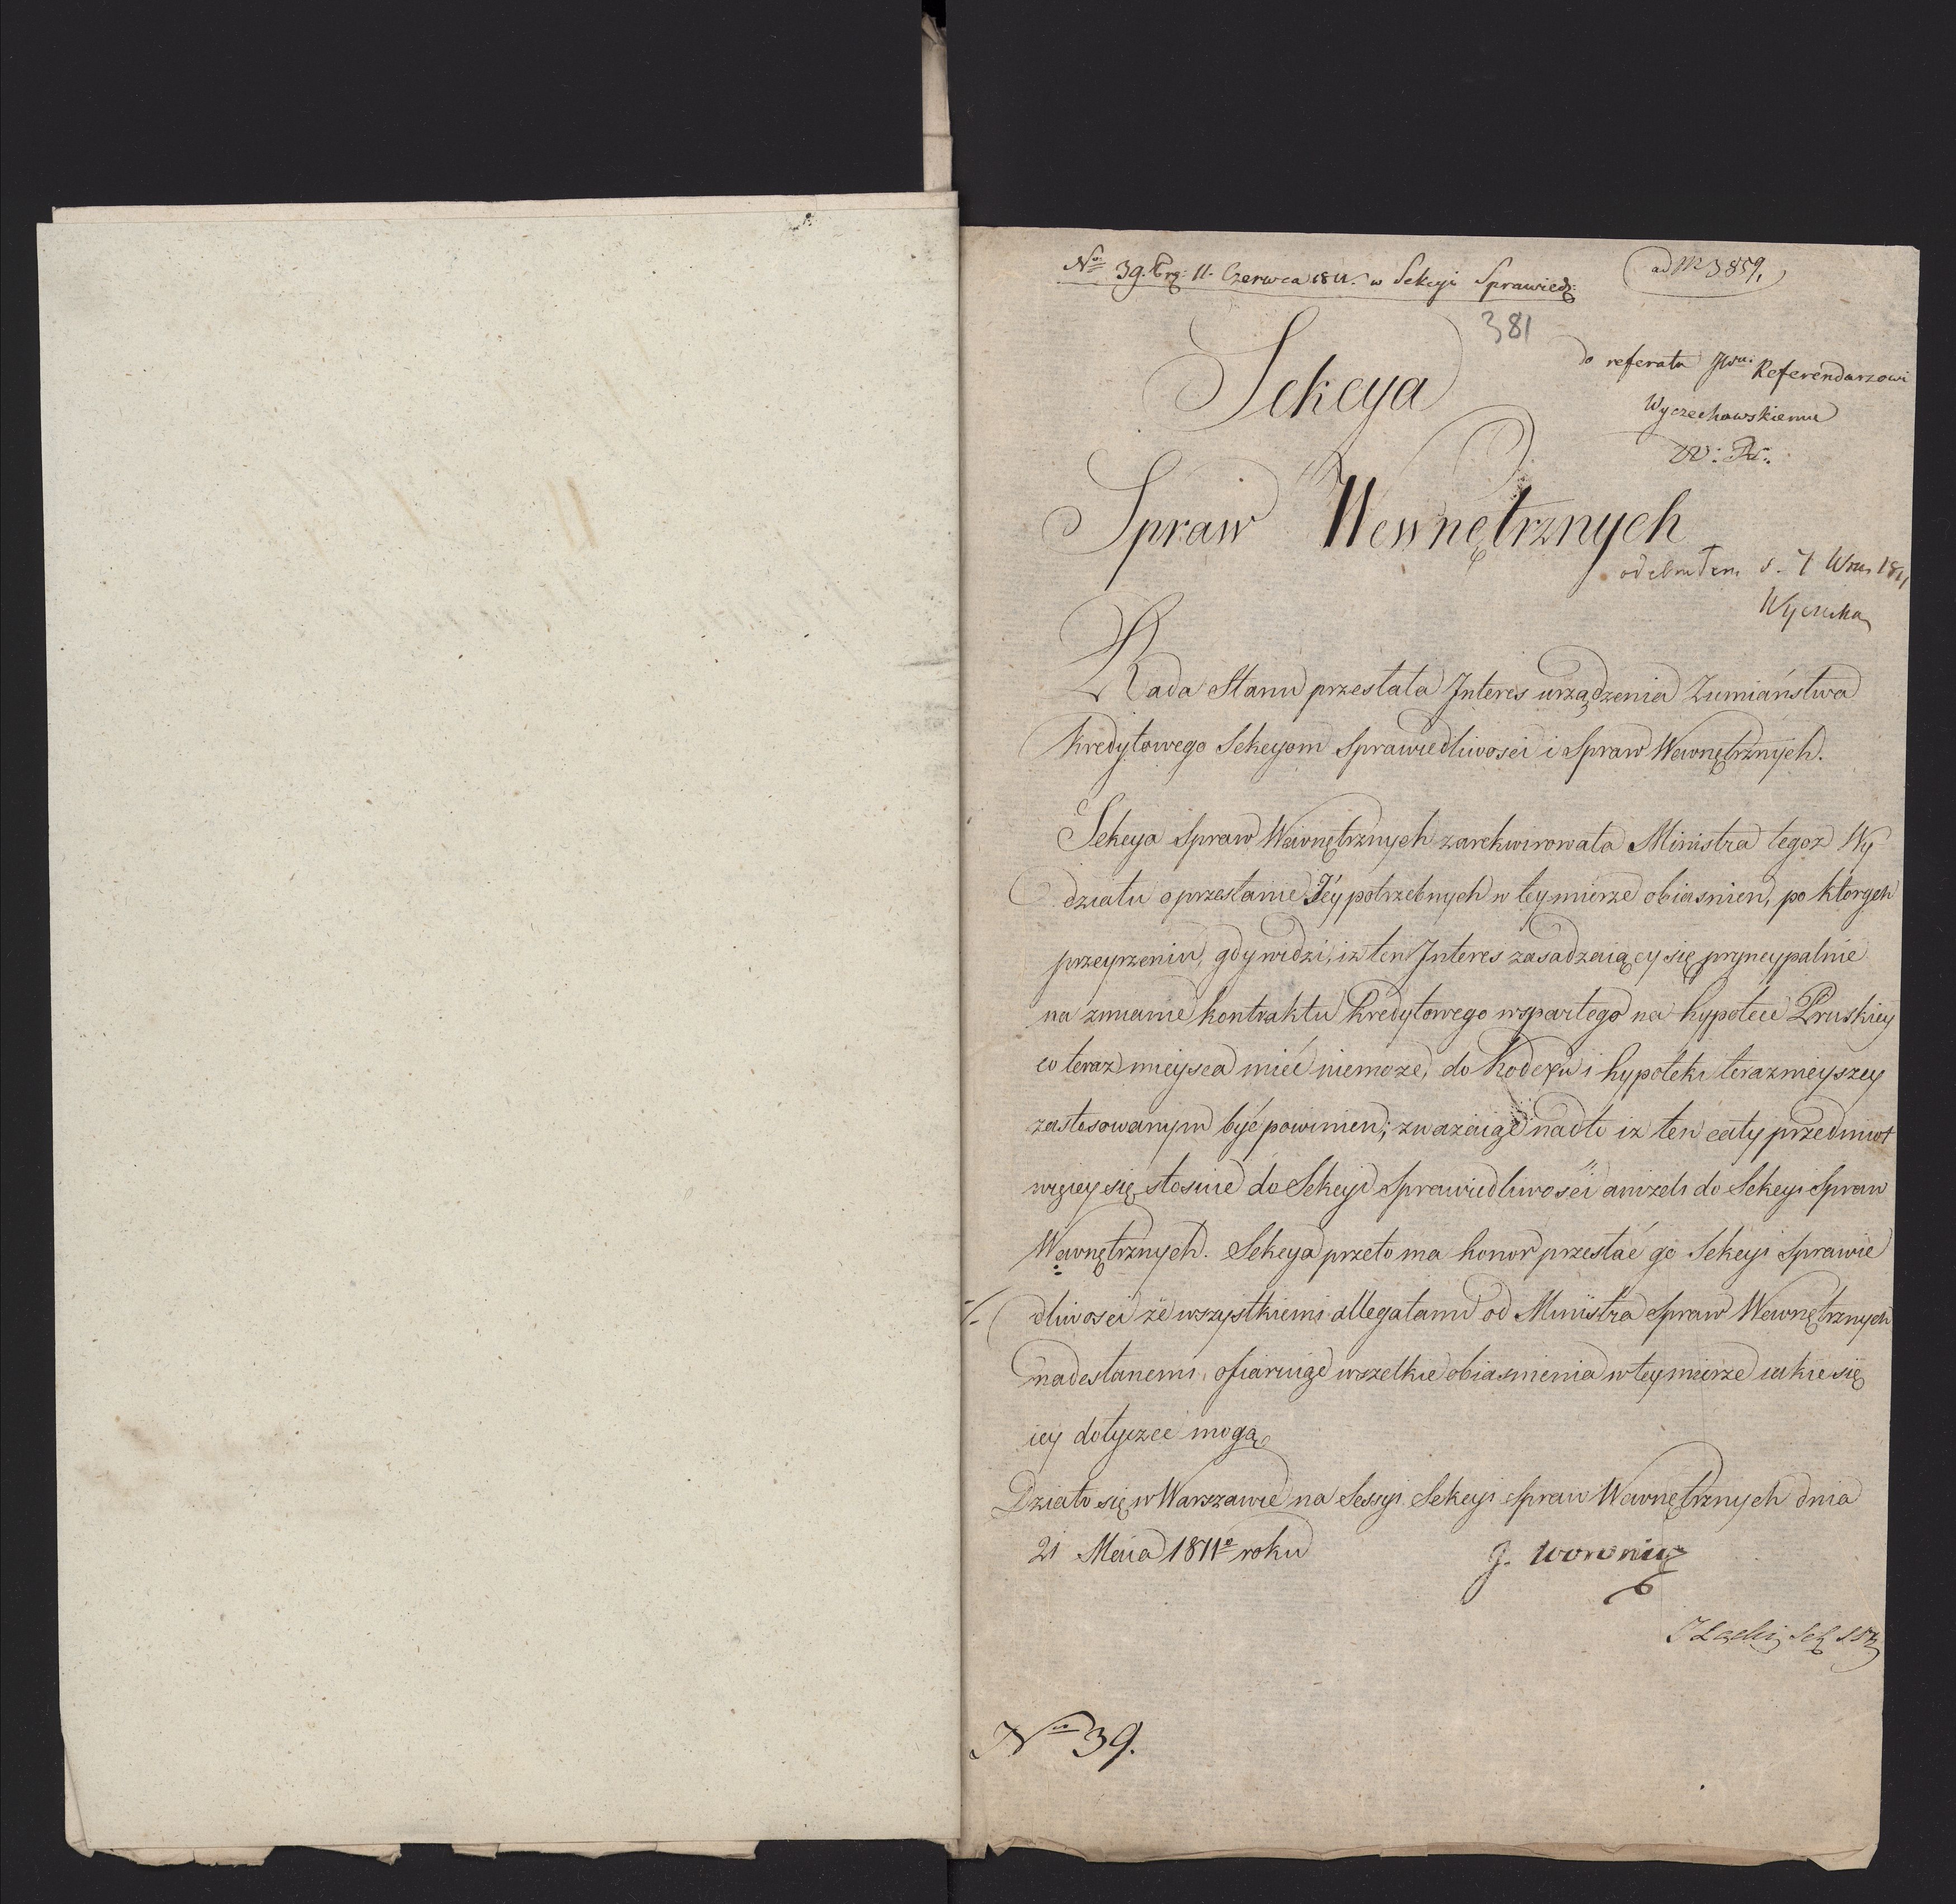 No 39. Prę: 11. Czerwca 1811. w Sekcyi Sprawiedz:
ad Nr 3859,
381
do referatu JWu: Referendarzowi
Wyczechowskiemu
Sekcya
Spraw Wewnętrznych
odebrałem d. 7 Wrze 1811
Rada Stanu przesłała Interes urządzenia Ziemiaństwa
Kredytowego Sekcyom Sprawiedliwości i Spraw Wewnętrznych.
Sekcya Spraw Wewnętrznych zarekwirowała Ministra tegoz Wy
działu o przesłanie Jey potrzebnych w tey mierze obiasnien, po ktorych
przeyrzeniu, gdy widzi, iz ten Interes zasadzaiący się pryncypalnie
na zmianie kontraktu kredytowego wspartego na hypotece Pruskiey
co teraz mieysca mieć niemoze, do Kodexu i hypoteki teraznieyszey
zastosowanym być powinien; zwazaiąc nadto iz ten cały przedmiot
więcey się stosuie do Sekcyi Sprawiedliwości anizeli do Sekcyi Spraw
Wewnętrznych. Sekcya przeto ma honor przesłać go Sekcyi Sprawie
dliwosci ze wszystkiemi allegatami od Ministra Spraw Wewnętrznych
nadesłanemi, ofiaruiąc wszelkie obiasnienia w tey mierze iakie się
iey dotyczeć mogą
Działo się w Warszawie na Sessyi Sekcyi Spraw Wewnętrznych dnia
21 Maia 1811o roku
J. Woronicz
No 39.